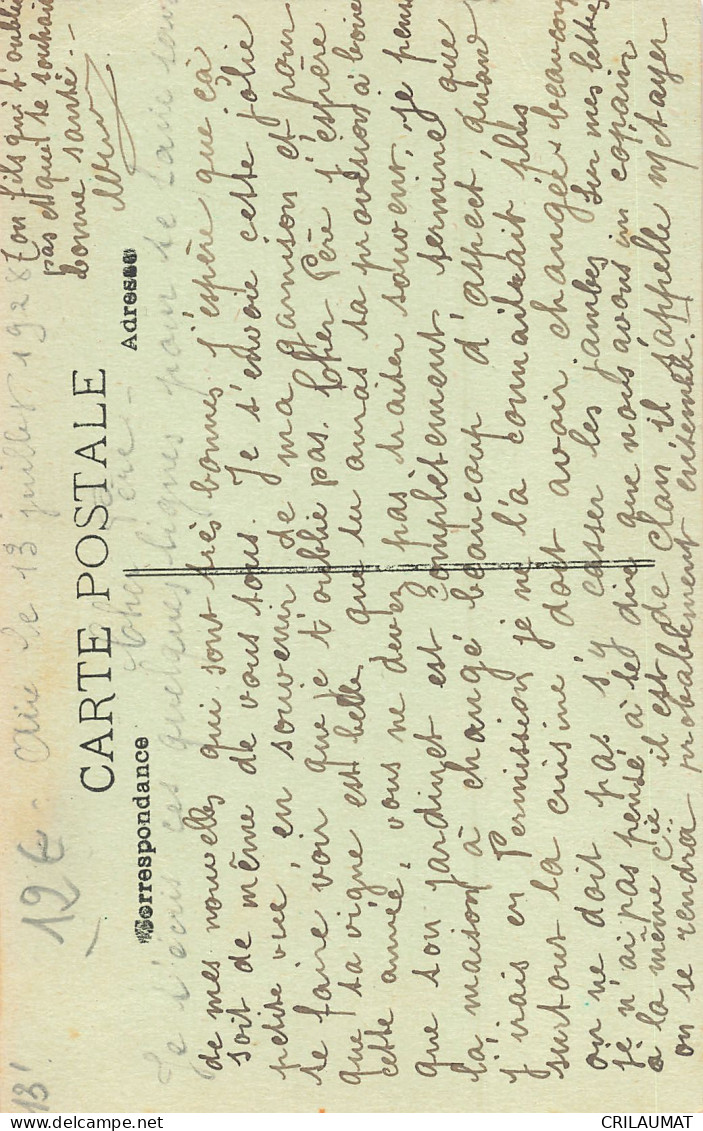 13'
12 €
Aire le 13 juillet 1928
CARTE POSTALE
Correspondance
Adresse
Cher Père -
Je t'écris ces quelques lignes pour te faire savoir
de mes nouvelles qui sont très bonnes j'espère que çà
soit de même de vous tous. Je t'envoie cette jolie
petite vue, en souvenir de ma garnison et pour
te faire voir que je t'oublie pas. Cher Père j'espère
que ta vigne est belle que tu auras ta provision à boire
cette année, vous ne devez pas traiter souvent, je pense
que ton jardinet est complètement terminé que
la maison à changé beaucoup d'aspect, quand
j'irais en Permission je ne l'a connaitrait plus
surtout la cuisine doit avoir changée beaucoup
on ne doit pas s'y casser les jambes. Sur mes lettres
je n'ai pas pensé à te dire que nous avons un copain
à la même Cie il est de Clan il s'appelle Métayer
on se rendra probablement ensemble.
Ton fils qui t'oublie
pas et qui te souhaite
bonne santé. -
delcampe.net
CRILAUMAT